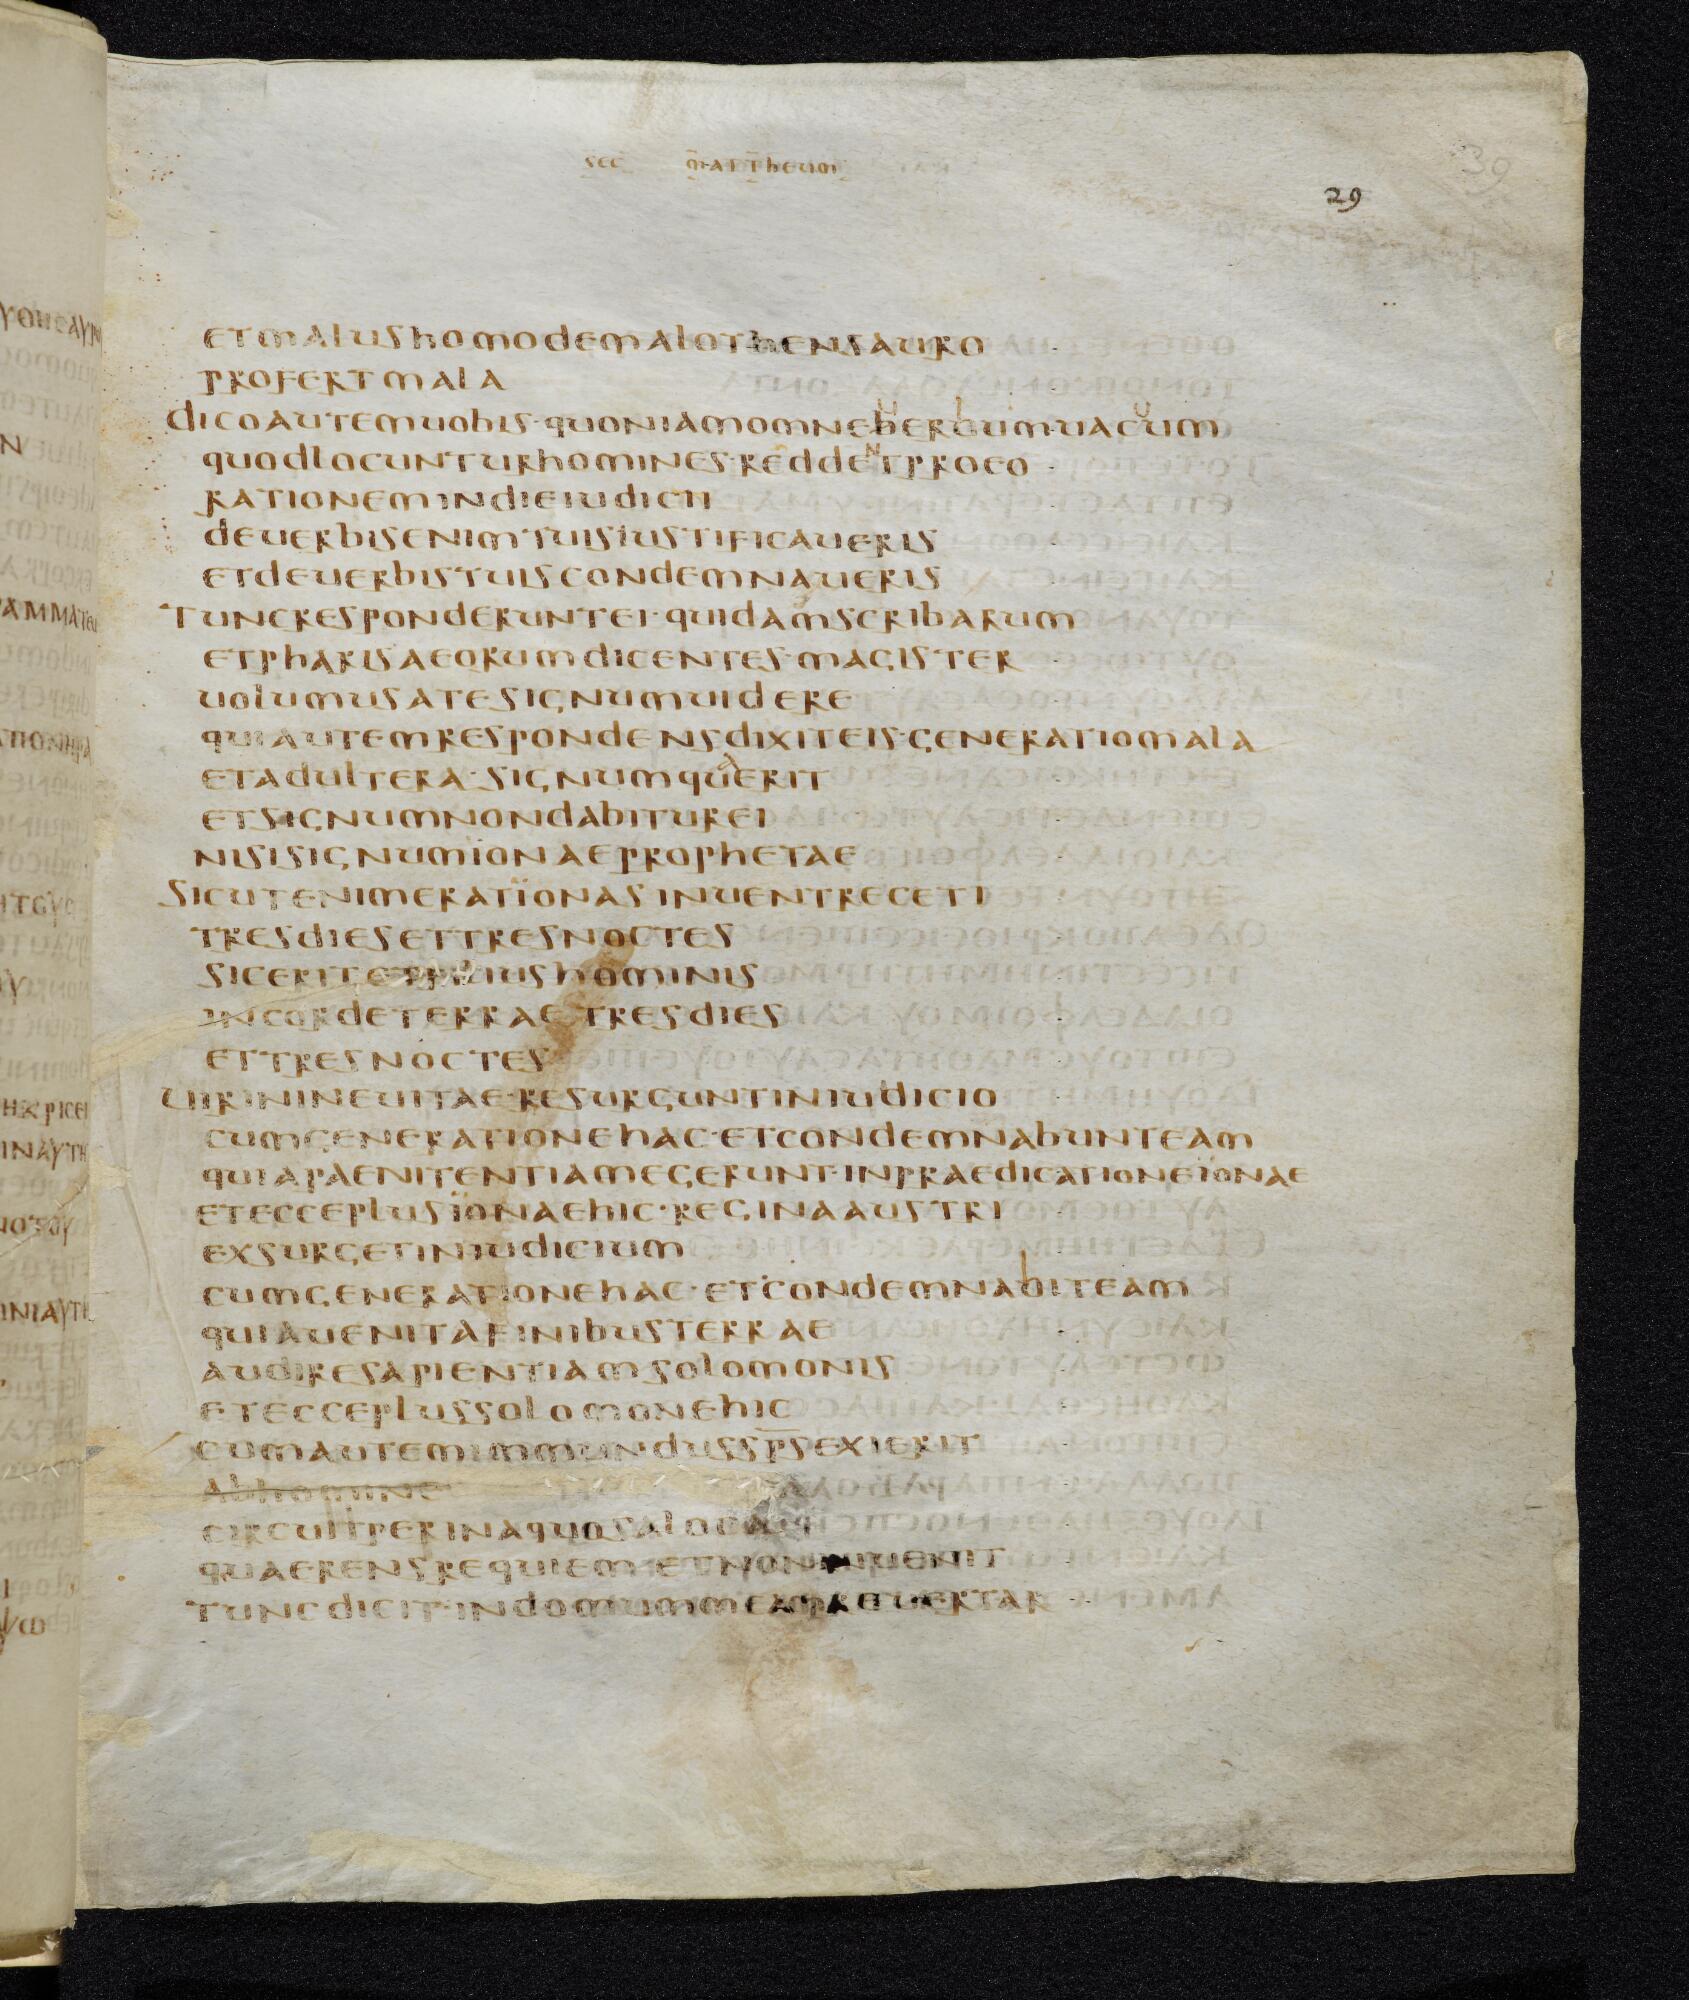 sec mattheum
29
39
etmalushomodemalothensauro
profertmala
dicoautemuobis·quoniamomneberbumuacuum
quodlocunturhomines·reddentproeo
rationemindieiudicii
deuerbisenimtuisiustificaueris
etdeuerbistuiscondemnaueris
tuncresponderuntei·quidamscribarum
etpharisaeorumdicentes·magister
uolumusatesignumuidere
quiautemrespondensdixiteis·generatiomala
etadultera·signumquaerit
etsignumnondabiturei
nisisignumionaeprophetae
sicutenimerationasinuentreceti
tresdiesettresnoctes
siceritetfiliushominis
incordeterraetresdies
ettresnoctes
uirinineuitae·resurguntiniudicio
cumgenerationehac·etcondemnabunteam
quiapaenitentiamegerunt·inpraedicationeïonae
etecceplusïonaehic·reginaaustri
exsurgetiniudicium
cumgenerationehac·etcondemnabiteam
quiauenitafinibusterrae
audiresapientiamsolomonis
etecceplussolomonehic
cumautemimmundusspsexierit
abhomine
circuitperinaquosaloca
quaerensrequiemetnoninuenit
tuncdicit·indomummeamreuertar